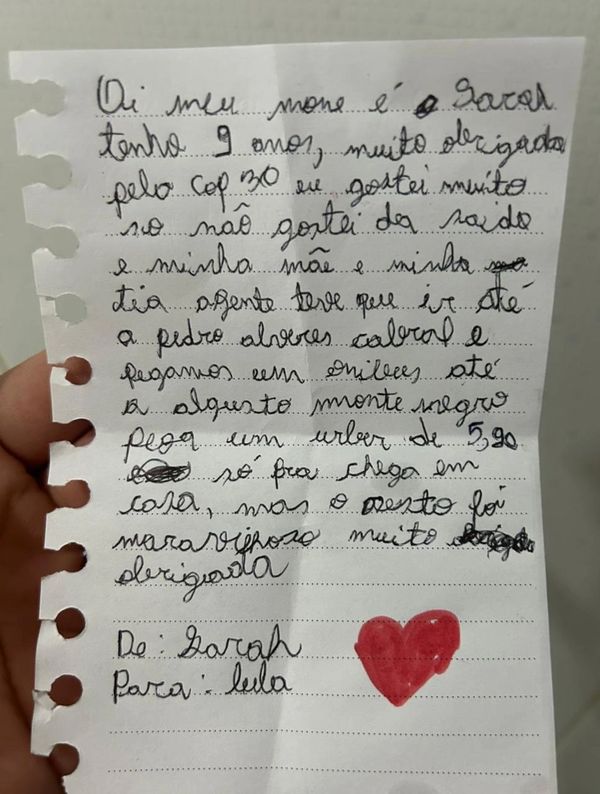 Oi meu mone é Sarah
tenho 9 anos, muito obrigada
pelo cop 30 eu gostei muito
so naõ gostei da saido
e minha mãe e minha
tia agente teve que ir até
a pedro alveres cabral e
pegamos um onibus até
a algusto monte negro
pega um urber de 5,90
só pra chega em
casa, mas o resto foi
maravilhoso muito
obrigada
De: Sarah
Para: lula